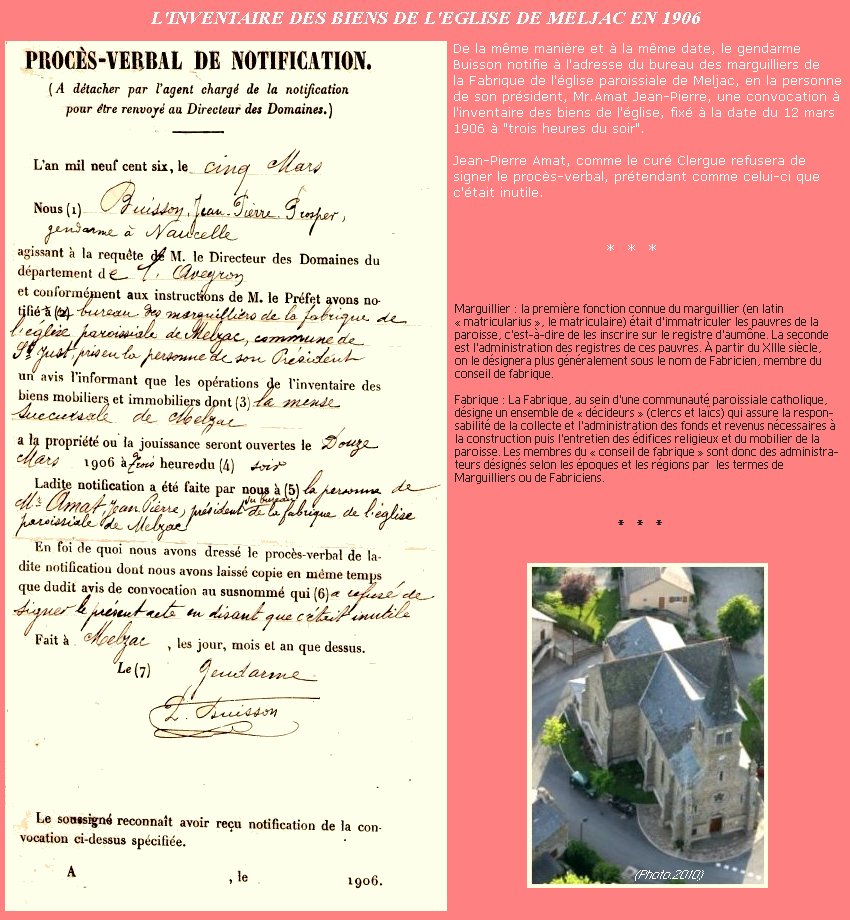 L'INVENTAIRE DES BIENS DE L'EGLISE DE MELJAC EN 1906
PROCÈS-VERBAL DE NOTIFICATION.
(A détacher par l'agent chargé de la notification
pour être renvoyé au Directeur des Domaines.)
L'an mil neuf cent six, le cinq Mars
Nous (1) Buisson, Jean-Pierre Prosper,
gendarme à Naucelle
agissant à la requête de M. le Directeur des Domaines du
département de l'Aveyron
et conformément aux instructions de M. le Préfet avons no-
tifié à (2) bureau des marguilliers de la fabrique de
l'église paroissiale de Meljac, commune de
St Just, pris en la personne de son Président
un avis l'informant que les opérations de l'inventaire des
biens mobiliers et immobiliers dont (3) la mense
succursale de Meljac
a la propriété ou la jouissance seront ouvertes le Douze
Mars 1906 à trois heures du (4) soir
Ladite notification a été faite par nous à (5) la personne de
Mr Amat Jean Pierre, président du bureau de la fabrique de l'église
paroissiale de Meljac
En foi de quoi nous avons dressé le procès-verbal de la-
dite notification dont nous avons laissé copie en même temps
que dudit avis de convocation au susnommé qui (6) a refusé de
signer le présent acte en disant que c'était inutile
Fait à Meljac, les jour, mois et an que dessus.
Le (7) Gendarme
P. Buisson
Le soussigné reconnaît avoir reçu notification de la con-
vocation ci-dessus spécifiée.
A , le 1906.
De la même manière et à la même date, le gendarme
Buisson notifie à l'adresse du bureau des marguilliers de
la Fabrique de l'église paroissiale de Meljac, en la personne
de son président, Mr.Amat Jean-Pierre, une convocation à
l'inventaire des biens de l'église, fixé à la date du 12 mars
1906 à "trois heures du soir".
Jean-Pierre Amat, comme le curé Clergue refusera de
signer le procès-verbal, prétendant comme celui-ci que
c'était inutile.
* * *
Marguillier : la première fonction connue du marguillier (en latin
« matricularius », le matriculaire) était d'immatriculer les pauvres de la
paroisse, c'est-à-dire de les inscrire sur le registre d'aumône. La seconde
est l'administration des registres de ces pauvres. À partir du XIIIe siècle,
on le désignera plus généralement sous le nom de Fabricien, membre du
conseil de fabrique.
Fabrique : La Fabrique, au sein d'une communauté paroissiale catholique,
désigne un ensemble de « décideurs » (clercs et laïcs) qui assure la respon-
sabilité de la collecte et l'administration des fonds et revenus nécessaires à
la construction puis l'entretien des édifices religieux et du mobilier de la
paroisse. Les membres du « conseil de fabrique » sont donc des administra-
teurs désignés selon les époques et les régions par les termes de
Marguilliers ou de Fabriciens.
* * *
(Photo.2010)